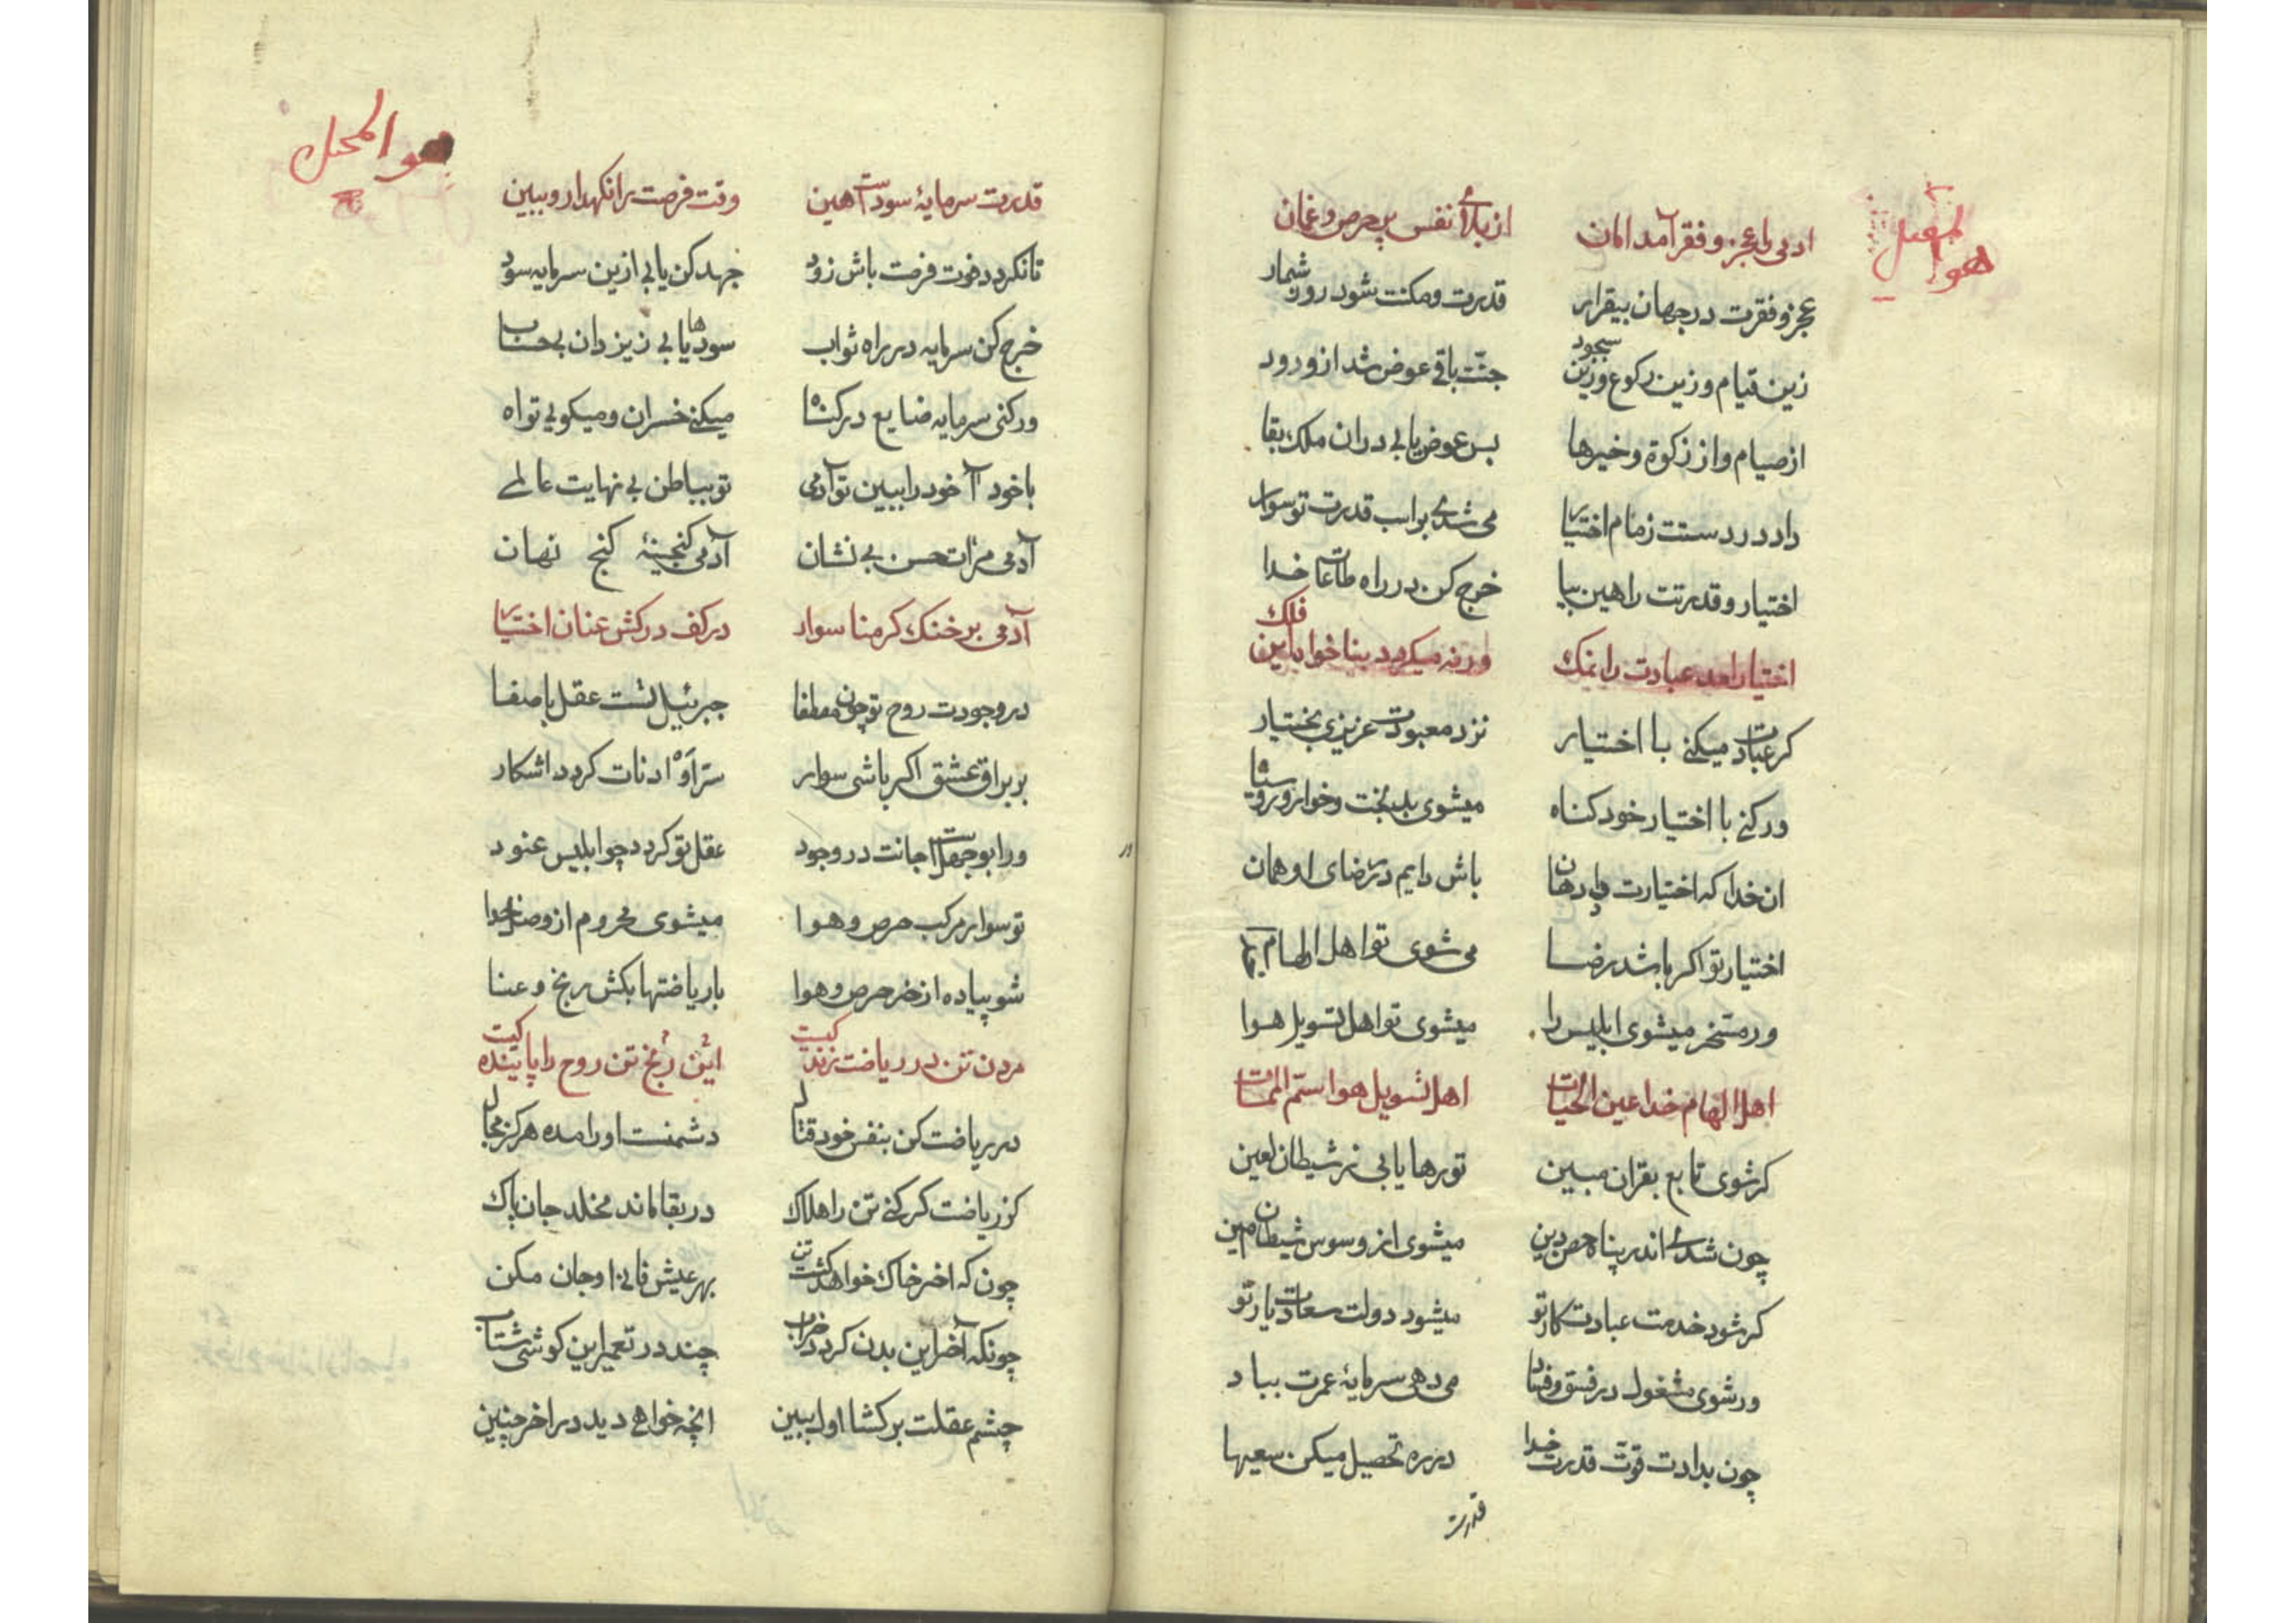 هو
ادمی را عجز و فقر آمد امان از بلای نفس پر حرص و غمان
عجز و فقرت در جهان بیقرار قدرت و مکنت شود روز شمار
زین قیام و زین رکوع و زین سجود جنّت باقی عوض شد از ورود
از صیام و از زکوة و خیرها بس عوض یابی در ان ملک بقا
داد در دستت زمام اختیار می شدی بر اسب قدرت تو سوار
اختیار و قدرتت را هین بیا خرج کن در راه طاعات خدا
اختیار امد عبادت را نمک ورنه میکردد بنا خواه این فلک
کر عبادت میکنی با اختیار نزد معبودت عزیزی بختیار
ور کنی با اختیار خود کناه میشوی بدبخت و خوار و رو سیاه
ان خدا که اختیارت داد هان باش دایم در رضای او همان
اختیار تو اکر باشد رضا می شوی تو اهل الهام
ور مسخر میشوی ابلیس را میشوی تو اهل تسویل هوا
اهل الهام خدا عین الحیات اهل تسویل هوا ستم الممات
کر شوی تابع بقران مبین تو رها یابی ز شیطان لعین
چون شدی اندر پناه حصن دین میشوی از وسوس شیطان امین
کر شود خدمت عبادت کار تو میشود دولت سعادت یار تو
ور شوی مشغول در فسق و فساد می دهی سرمایهٔ عمرت بباد
چون بدادت قوّت قدرت خدا در ره تحصیل میکن سعیها
قدرت
هو
قدرتت سرمایهٔ سودست هین وقت فرصت را نکهدار و ببین
تا نکردد فوت فرصت باش زود جهد کن یابی ازین سرمایه سود
خرج کن سرمایه در راه ثواب سودها یابی ز یزدان بی حساب
ور کنی سرمایه ضایع در کناه میکنی خسران و میکویی تو اه
با خود آ خود را ببین تو آدمی تو بباطن بی نهایت عالمی
آدمی مرات حسن بی نشان آدمی کنجینهٔ کنج نهان
آدمی بر خنک کرمنا سوار در کف در کش عنان اختیار
در وجودت روح تو چون مصطفا جبرئیل تست عقل با صفا
بر براق عشق اکر باشی سوار سرّ او ادنات کردد اشکار
ور ابو جهلست جانت در وجود عقل تو کردد چو ابلیس عنود
تو سوار مرکب حرص و هوا میشوی محروم از وصل خدا
شو پیاده از خر حرص و هوا بار ریاضتها بکش رنج و عنا
مردن تن در ریاضت زندکیست این رنج تن روح را پایندکیست
در ریاضت کن بنفس خود قتال دشمنت او را مده هرکز مجال
کز ریاضت کر کنی تن را هلاک در بقا ماند مخلد جان پاک
چون که اخر خاک خواهد کشت تن بهر عیش فانی او جان مکن
چونکه آخر این بدن کردد خراب چند در تعمیر این کوشی شتاب
چشم عقلت بر کشا اول ببین انچه خواهی دید در اخر چنین